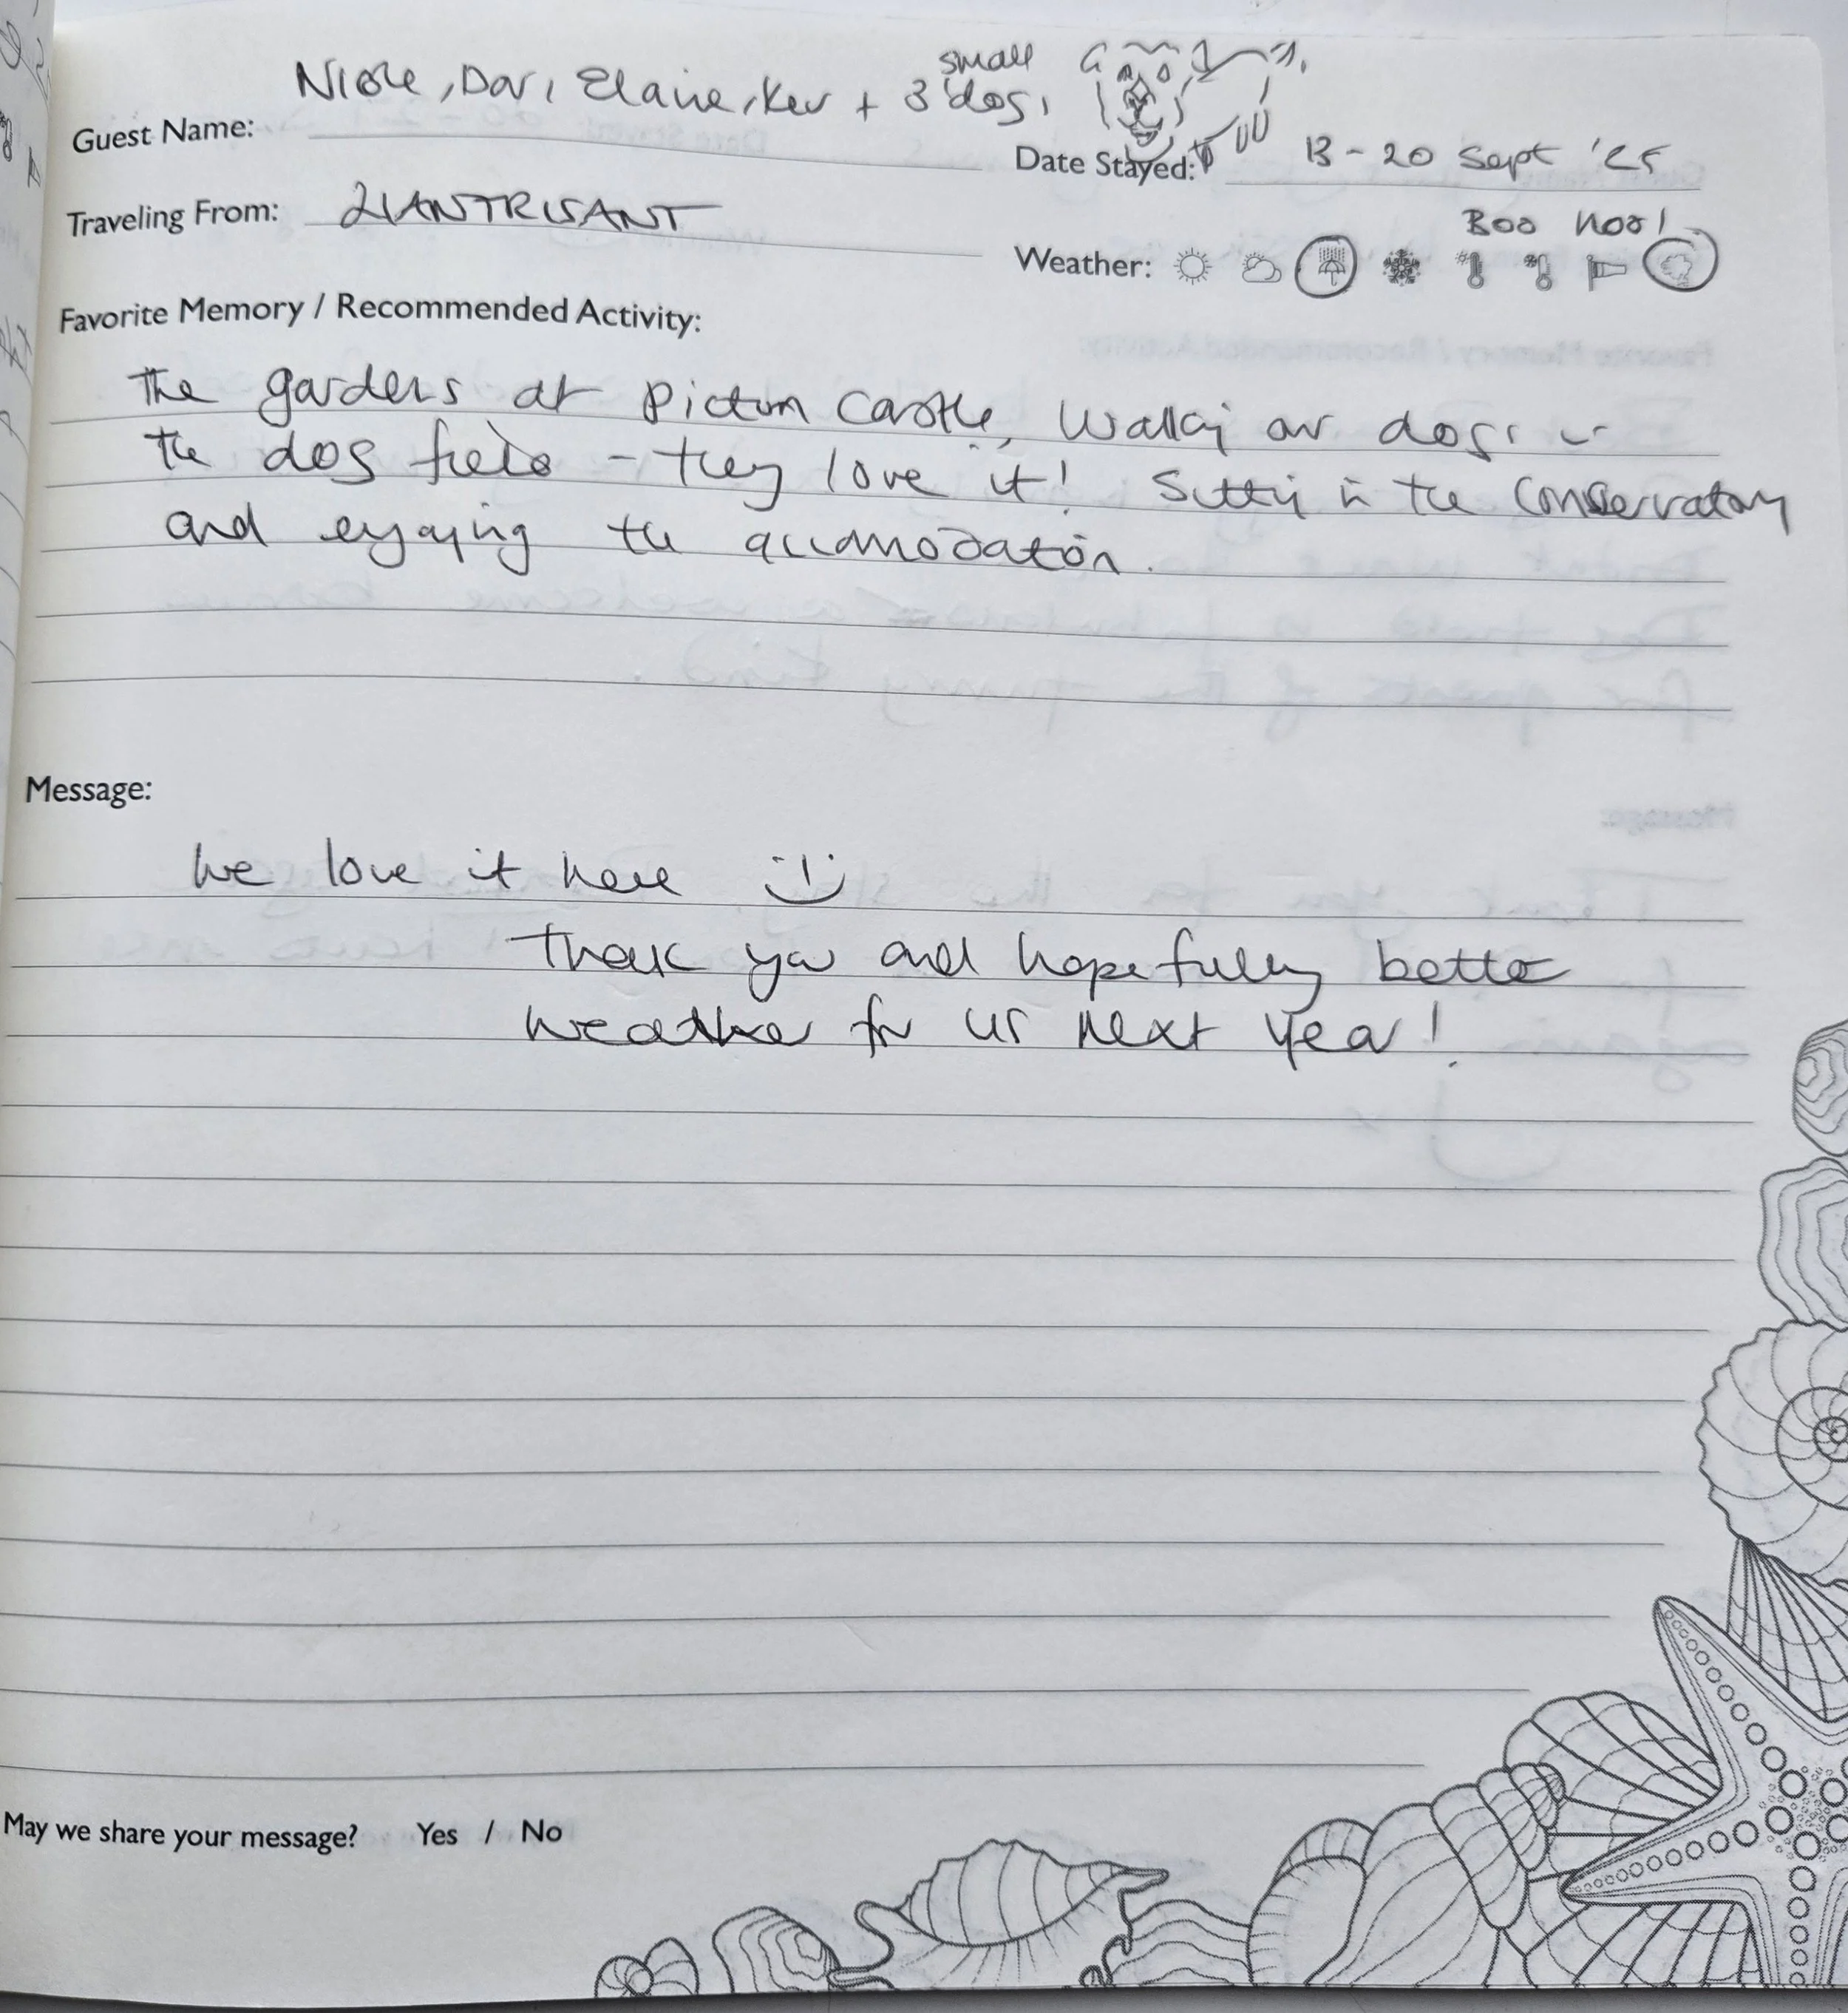 small
Guest Name: Nicole, Dav, Elaine, Kev + 3 dogs
Date Stayed: 13 - 20 Sept '25
Traveling From: LLANTRISANT
Boo hoo!
Weather:
Favorite Memory / Recommended Activity:
The gardens at Picton Castle, Walking our dogs in
the dog field - they love it! Sitting in the Conservatory
and enjoying the accomodation.
Message:
We love it here
Thank you and hopefully better
weather for us next year!
May we share your message? Yes / No